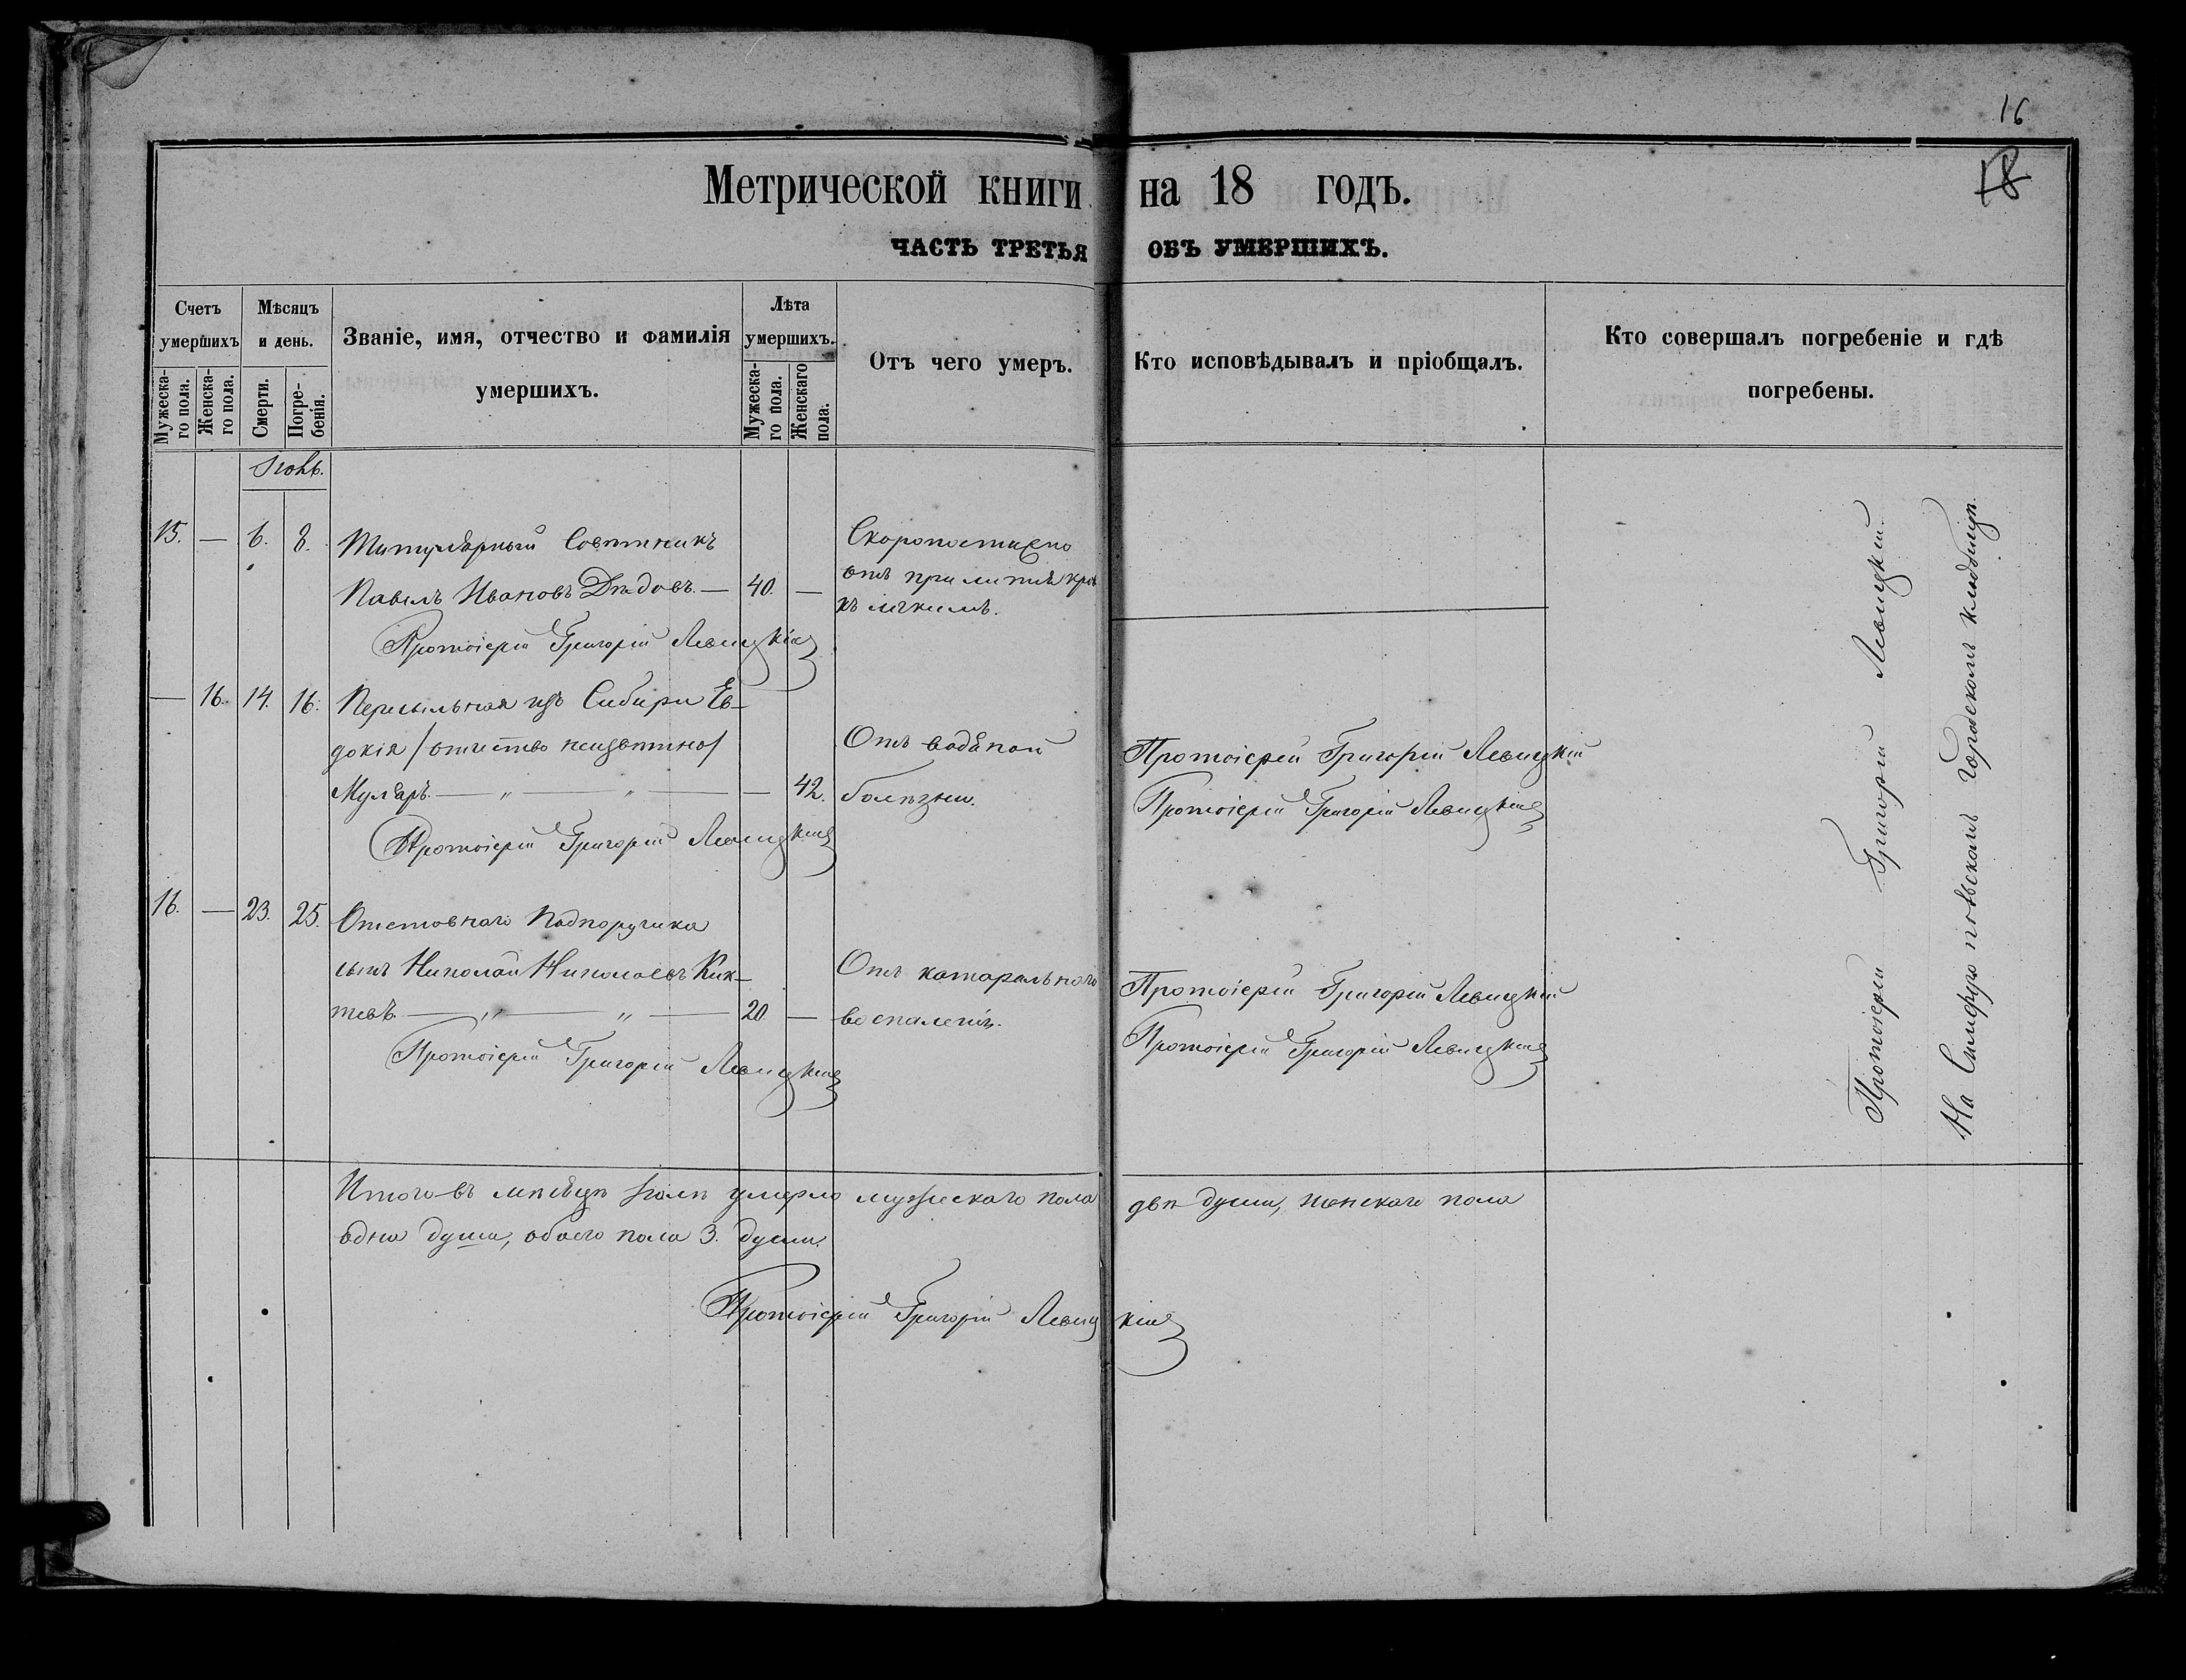 16
18
Метрической книги на 18 годъ.
ЧАСТЬ ТРЕТЬЯ ОБЪ УМЕРШИХЪ.
Счетъ умершихъ
Мужеска-го пола.
Женска-го пола.
Мѣсяцъ и день.
Смерти.
Погре-бенія.
Званіе, имя, отчество и фамилія
умершихъ.
Лѣта умершихъ.
Мужеска-го пола.
Женскаго пола.
Отъ чего умеръ.
Кто исповѣдывалъ и пріобщалъ.
Кто совершалъ погребеніе и гдѣ
погребены.
15. — 6. 8. Титулярный Совѣтникъ
Павелъ Ивановъ Дѣдовъ. — 40. —
Скоропостижно
отъ прилитія кров
къ легкимъ.
Протоіерей Григорій Левицкій
— 16. 14. 16. Пересыльная изъ Сибири Ев-
докія /отчество неизвѣстно/
Муляръ. — „ — „ — — 42.
Отъ водяной
болѣзни.
Протоіерей Григорій Левицкій
Протоіерей Григорій Левицкій
Протоіерей Григорій Левицкій
16. — 23. 25. Отставнаго Подпоручика
сынъ Николай Николаевъ Кик-
тевъ. — „ — „ — 20. —
Отъ катаральнаго
воспаленія.
Протоіерей Григорій Левицкій
Протоіерей Григорій Левицкій
Протоіерей Григорій Левицкій
Протоіерей Григорій Левицкій.
На Городскомъ кладбищѣ.
Итого въ мѣсяцѣ умерло мужескаго пола двѣ души, женскаго пола
одна душа, обоего пола 3. души.
Протоіерей Григорій Левицкій